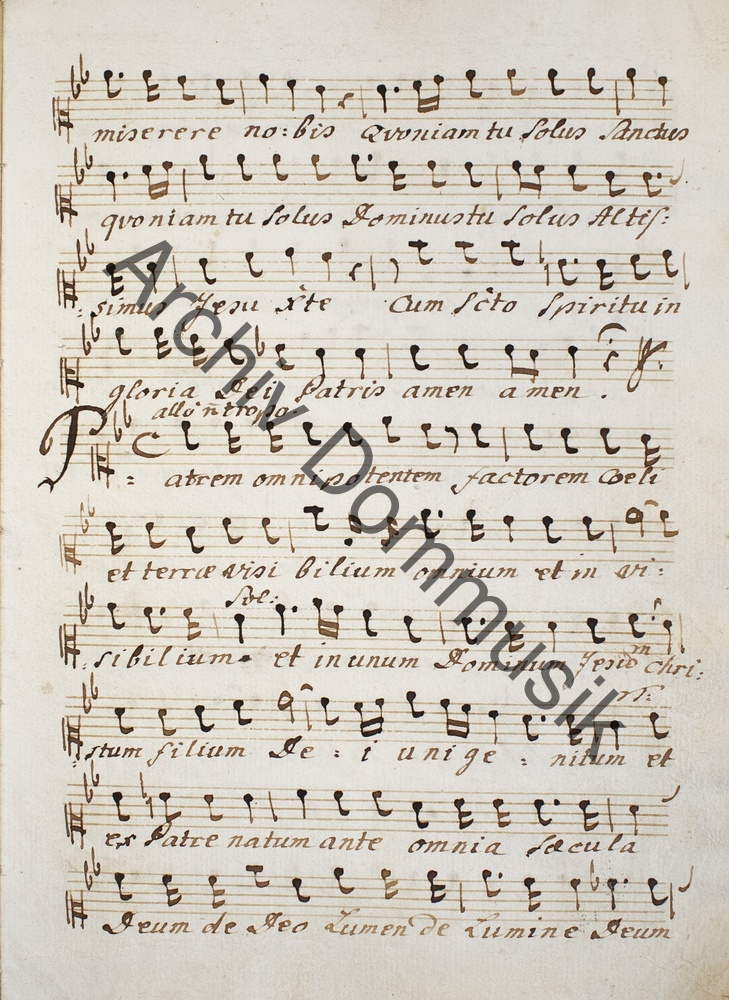 miserere no:bis Qvoniam tu Solus Sanctus
qvoniam tu Solus Dominus tu Solus Altis:
:simus Jesu Xte Cum Scto Spiritu in
gloria Dei Patris amen amen.
allo
Patrem omnipotentem factorem Coeli
et terræ visi bilium omnium et in vi:
Sol:
:sibilium et in unum Dominum Jesum Chri:
:stum filium De : i unige : nitum et
ex Patre natum ante omnia Sæcula
Deum de Deo Lumen de Lumine Deum
Archiv Dommusik